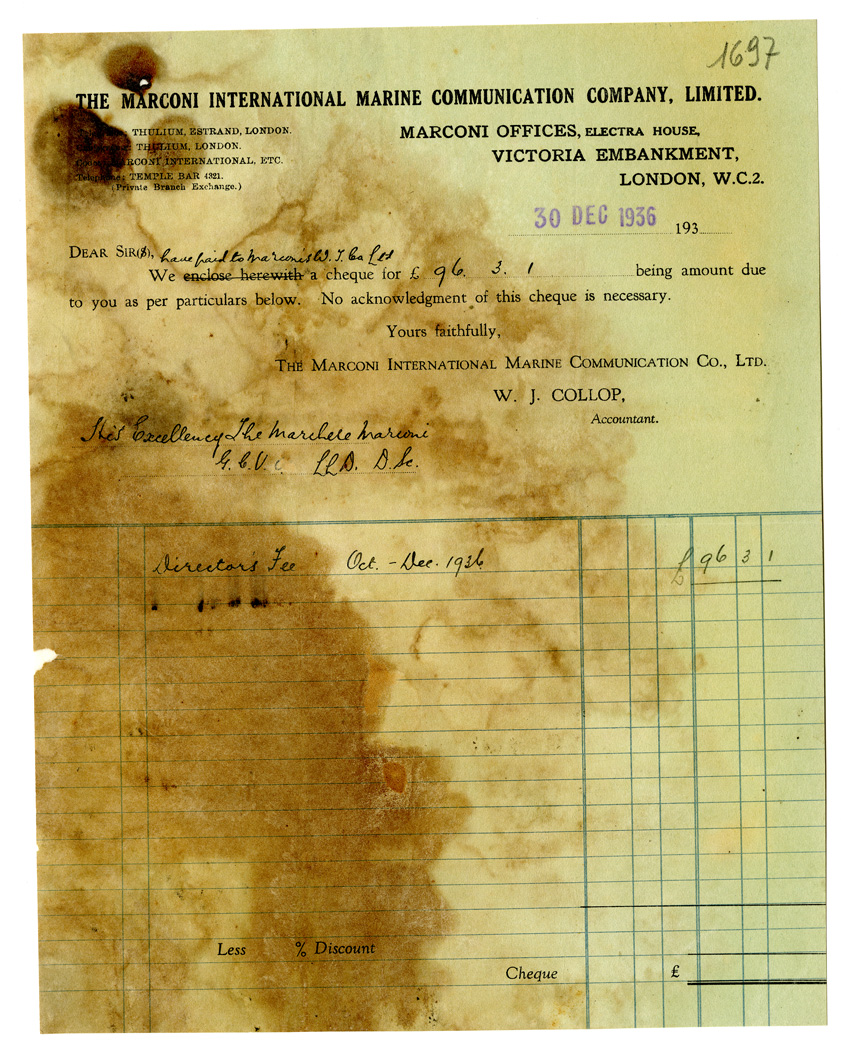 1697
THE MARCONI INTERNATIONAL MARINE COMMUNICATION COMPANY, LIMITED.
THULIUM, ESTRAND, LONDON.
THULIUM, LONDON.
MARCONI INTERNATIONAL, ETC.
Telephone: TEMPLE BAR 4321.
(Private Branch Exchange.)
MARCONI OFFICES, ELECTRA HOUSE,
VICTORIA EMBANKMENT,
LONDON, W.C.2.
30 DEC 1936 193
DEAR SIR(S), have paid to Marconi's W. T. Co Ltd
We enclose herewith a cheque for £ 96. 3. 1 being amount due
to you as per particulars below. No acknowledgment of this cheque is necessary.
Yours faithfully,
THE MARCONI INTERNATIONAL MARINE COMMUNICATION CO., LTD.
W. J. COLLOP,
Accountant.
His Excellency The Marchese Marconi
G.C.V.O. LLD. D.Sc.
Director's Fee Oct. - Dec. 1936 £ 96 3 1
Less % Discount
Cheque £